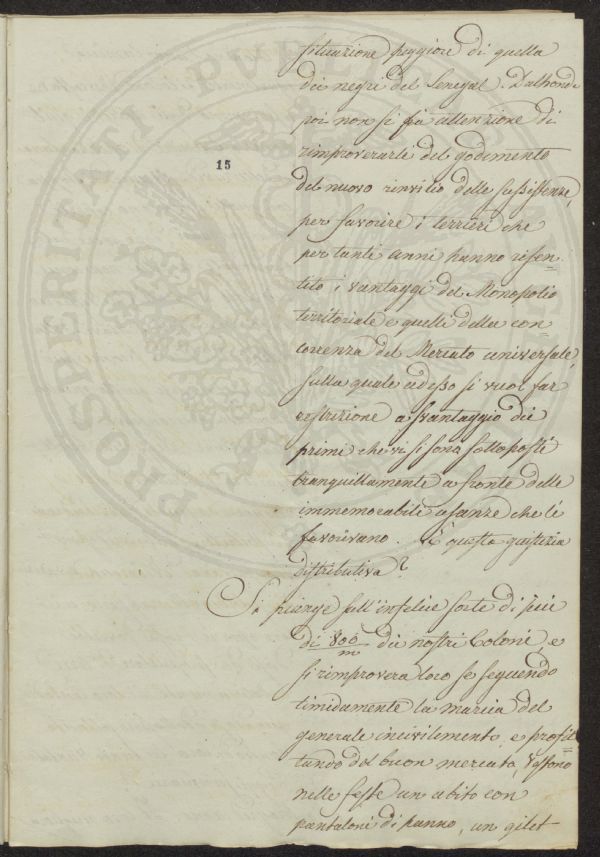 situazione peggiore di quella
dei negri del Senegal. Dalronde
poi non si fa attenzione di
rimproverarle del godimento
del nuovo rinvilio delle sussistenze,
per favorire i terrieri che
per tanti anni hanno risen=
tito i vantaggi del Monopolio
territoriale e quelli della con=
correnza del Mercato universale,
sulla quale adesso si vuol far
restrizione a svantaggio dei
primi che vi si sono sottoposti
tranquillamente a fronte delle
immemorabili usanze che li
favorivano. È questa giustizia
distributiva?
Si piange sull'infelice sorte di più
di 800/m dei nostri Coloni, e
si rimprovera loro se seguendo
timidamente la marcia del
generale incivilimento, e profit=
tando del buon mercato, vestono
nelle feste un abito con
pantaloni di panno, un gilet
15
PROSPERITATI PVB